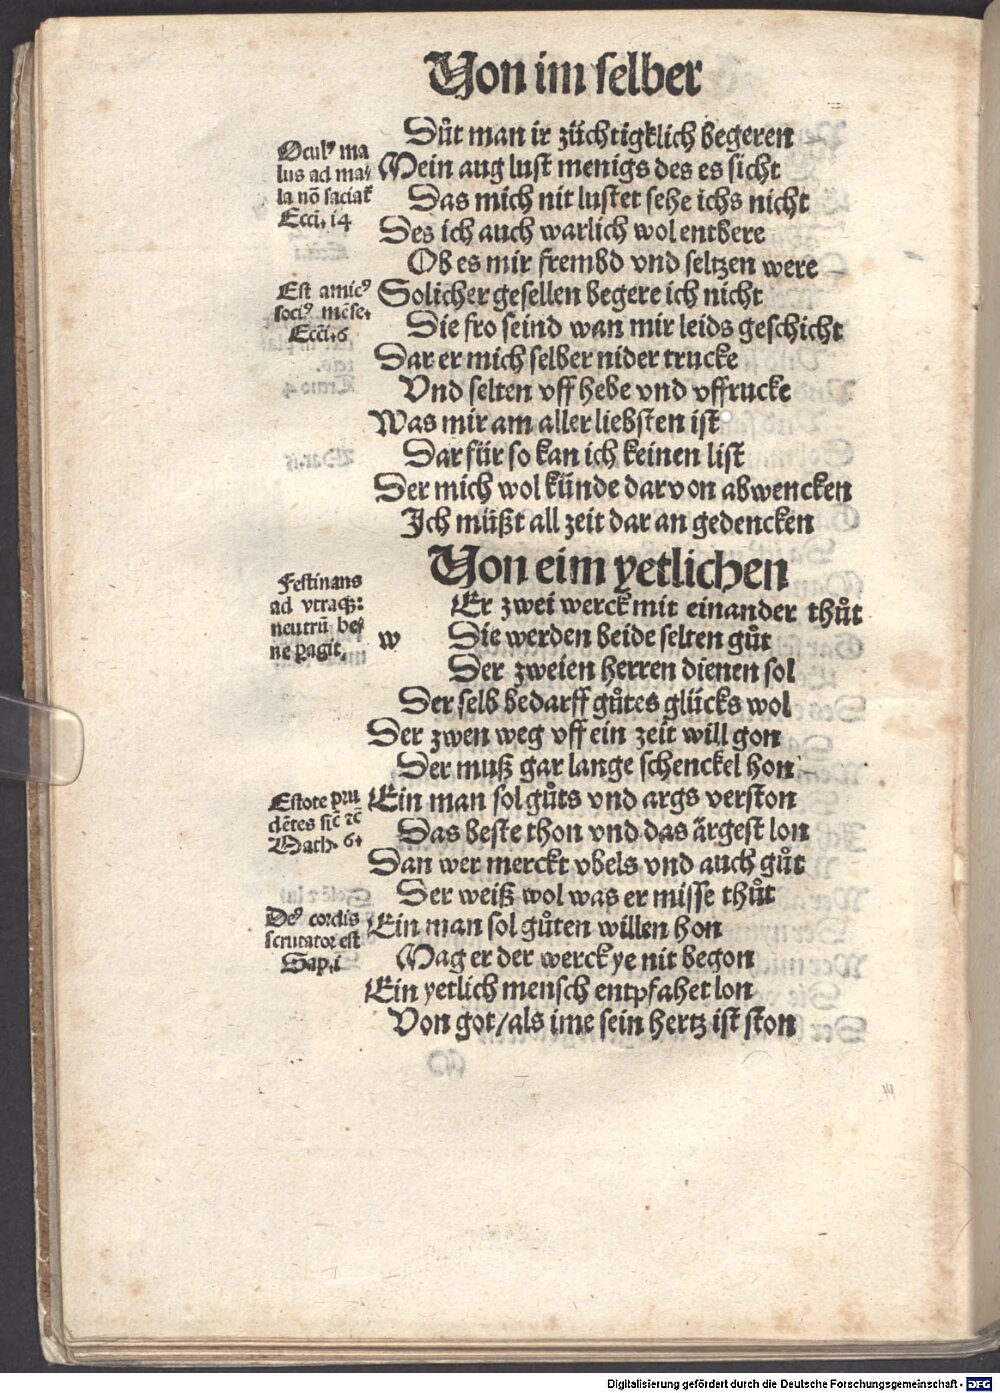 Von im selber
Důt man ir züchtigklich begeren
Ocul⁹ ma
lus ad ma⸗
la nō saciat͛
Ecci. 14
Mein aug lust menigs des es sicht
Das mich nit lustet sehe ichs nicht
Des ich auch warlich wol entbere
Ob es mir frembd vnd seltzen were
Est amic⁹
soci⁹ mēse.
Ecci. 6
Solicher gesellen begere ich nicht
Die fro seind wan mir leids geschicht
Dar er mich selber nider trucke
Vnd selten vff hebe vnd vffrucke
Was mir am aller liebsten ist
Dar für so kan ich keinen list
Der mich wol künde darvon abwencken
Ich müßt all zeit dar an gedencken
Von eim yetlichen
Festinans
ad vtraqꝫ:
neutrū be⸗
ne ꝑagit.
w
Er zwei werck mit einander thůt
Die werden beide selten gůt
Der zweien herren dienen sol
Der selb bedarff gůtes glücks wol
Der zwen weg vff ein zeit will gon
Der muß gar lange schenckel hon
Estote pru
dētes sic̄ ⁊c̄
Math. 6.
Ein man sol gůts vnd args verston
Das beste thon vnd das ärgest lon
Dan wer merckt vbels vnd auch gůt
Der weiß wol was er misse thůt
De⁹ cordis
scrutator est
Sap. i
Ein man sol gůten willen hon
Mag er der werck ye nit begon
Ein yetlich mensch entpfahet lon
Von got/als ime sein hertz ist ston
Digitalisierung gefördert durch die Deutsche Forschungsgemeinschaft - DFG